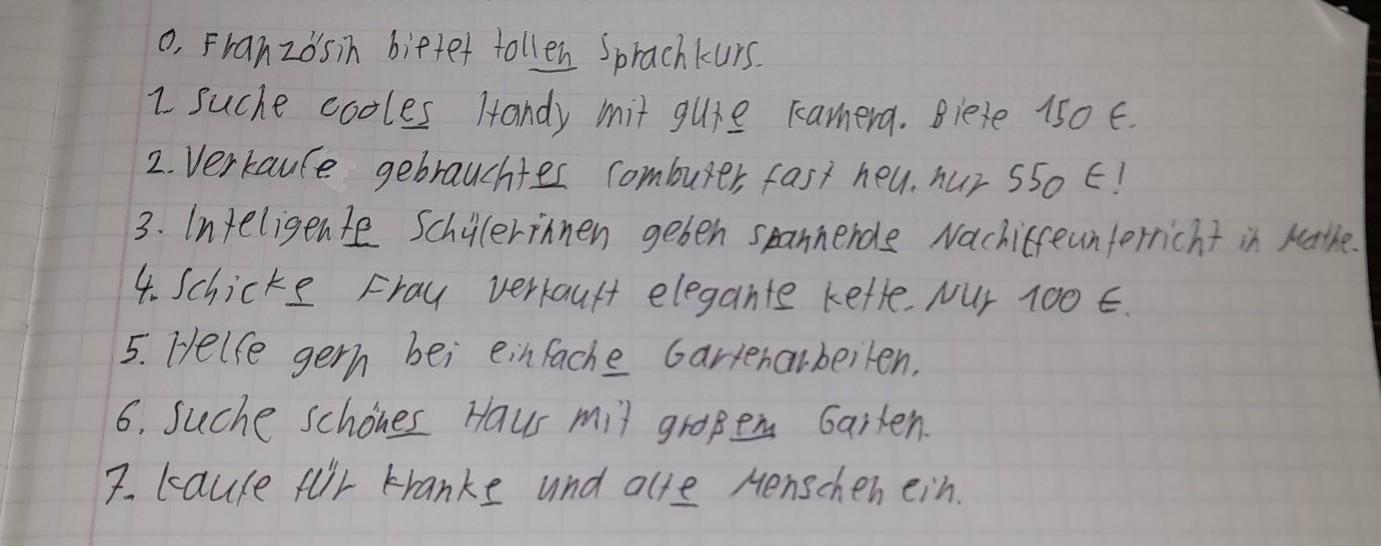 0. Französin bietet tollen Sprachkurs.
1 Suche cooles Handy mit gute Kamera. Biete 150 €.
2. Verkaufe gebrauchtes Combuter, fast neu. nur 550 €!
3. Inteligente Schülerinnen geben spannende Nachilfeunterricht in Mathe.
4. Schicke Frau verkauft elegante Kette. Nur 100 €.
5. Helfe gern bei einfache Gartenarbeiten.
6. Suche schönes Haus mit großem Garten.
7. Kaufe für kranke und alte Menschen ein.